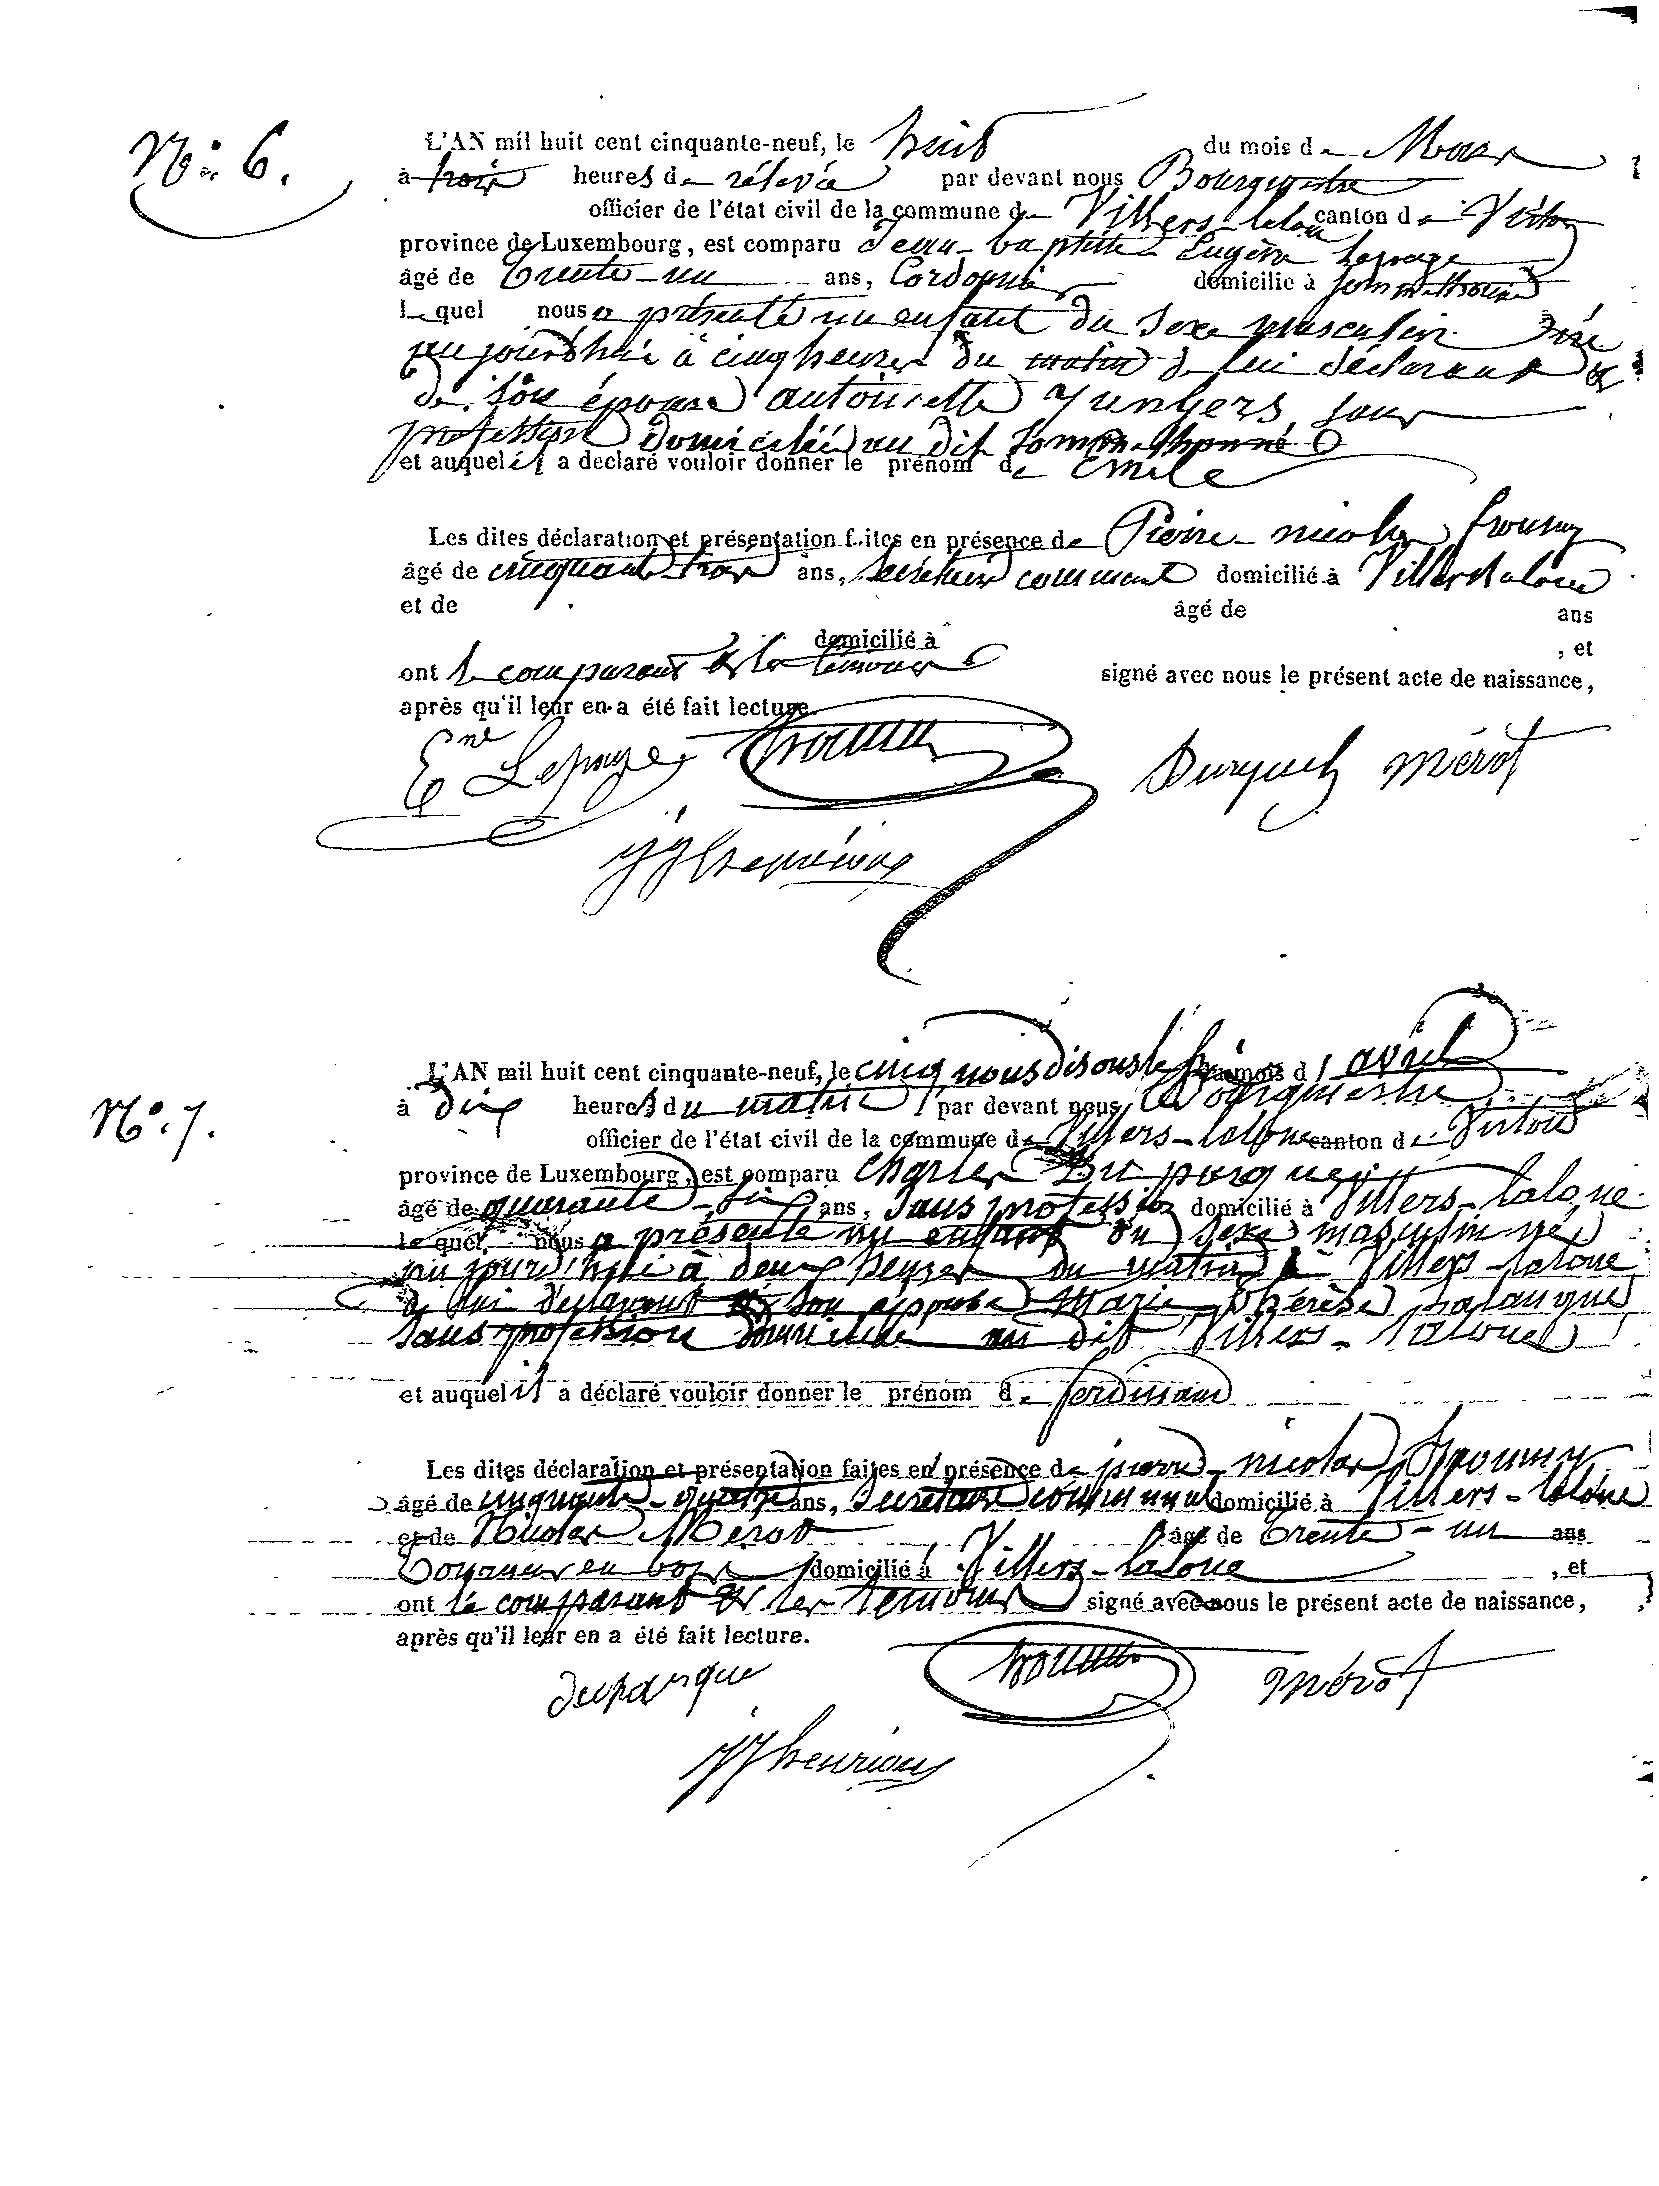 N° 6.
L'AN mil huit cent cinquante-neuf, le huit du mois de Mars
à trois heures de rélevée par devant nous Bourgmestre
officier de l'état civil de la commune de Villers-laloue canton de Virton
province de Luxembourg, est comparu Jean-baptiste Eugène Lepage
âgé de trente-un ans, Cordonnier domicilié à Sommethonne
le quel nous a présenté un enfant du sexe masculin né
aujourd'hui à cinq heures du matin de lui déclarant &
de son épouse antoinette Yungers sans
profession domiciliée au dit Sommethonne
et auquel il a declaré vouloir donner le prénom de Emile
Les dites déclaration et présentation faites en présence de Pierre-nicolas
âgé de cinquante-trois ans, Secrétaire communal domicilié à Villers-laloue
et de âgé de ans
domicilié à , et
ont le comparant & les témoins signé avec nous le présent acte de naissance,
après qu'il leur en a été fait lecture.
Ene Lepage mérot
N° 7.
L'AN mil huit cent cinquante-neuf, le cinq nous disons le six du mois d'avril
à dix heures du matin par devant nous Bourgmestre
officier de l'état civil de la commune de Villers-laloue canton de Virton
province de Luxembourg, est comparu Charles Duparque
âgé de quarante-six ans, Sans profession domicilié à Villers-laloue
le quel nous a présenté un enfant du sexe masculin né
aujourd'hui à deux heures du matin à Villers-laloue
de lui déclarant & son épouse Marie-Thérèse
sans profession domiciliée au dit Villers-laloue
et auquel il a déclaré vouloir donner le prénom de ferdinand
Les dites déclaration et présentation faites en présence de pierre-nicolas
âgé de cinquante-quatre ans, Secrétaire communal domicilié à Villers-laloue
et de Nicolas Mérot âgé de trente-un ans
Tourneur en bois domicilié à Villers-laloue , et
ont le comparant & les témoins signé avec nous le présent acte de naissance,
après qu'il leur en a été fait lecture.
duparque mérot
JJ henrion